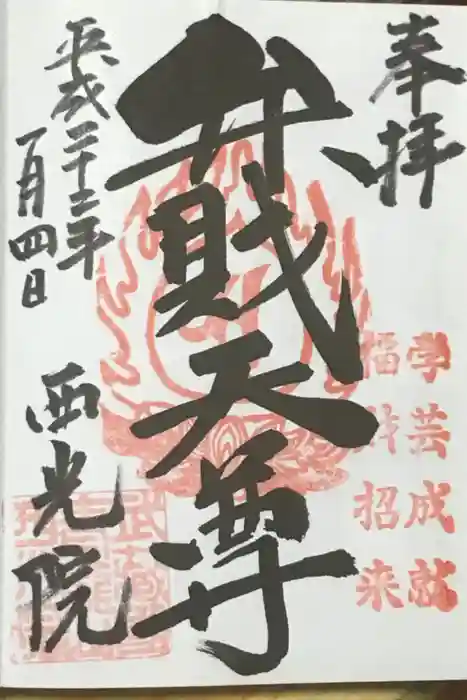 奉拝
学芸成就
福財招来
弁財天尊
平成二十三年
一月四日
西光院